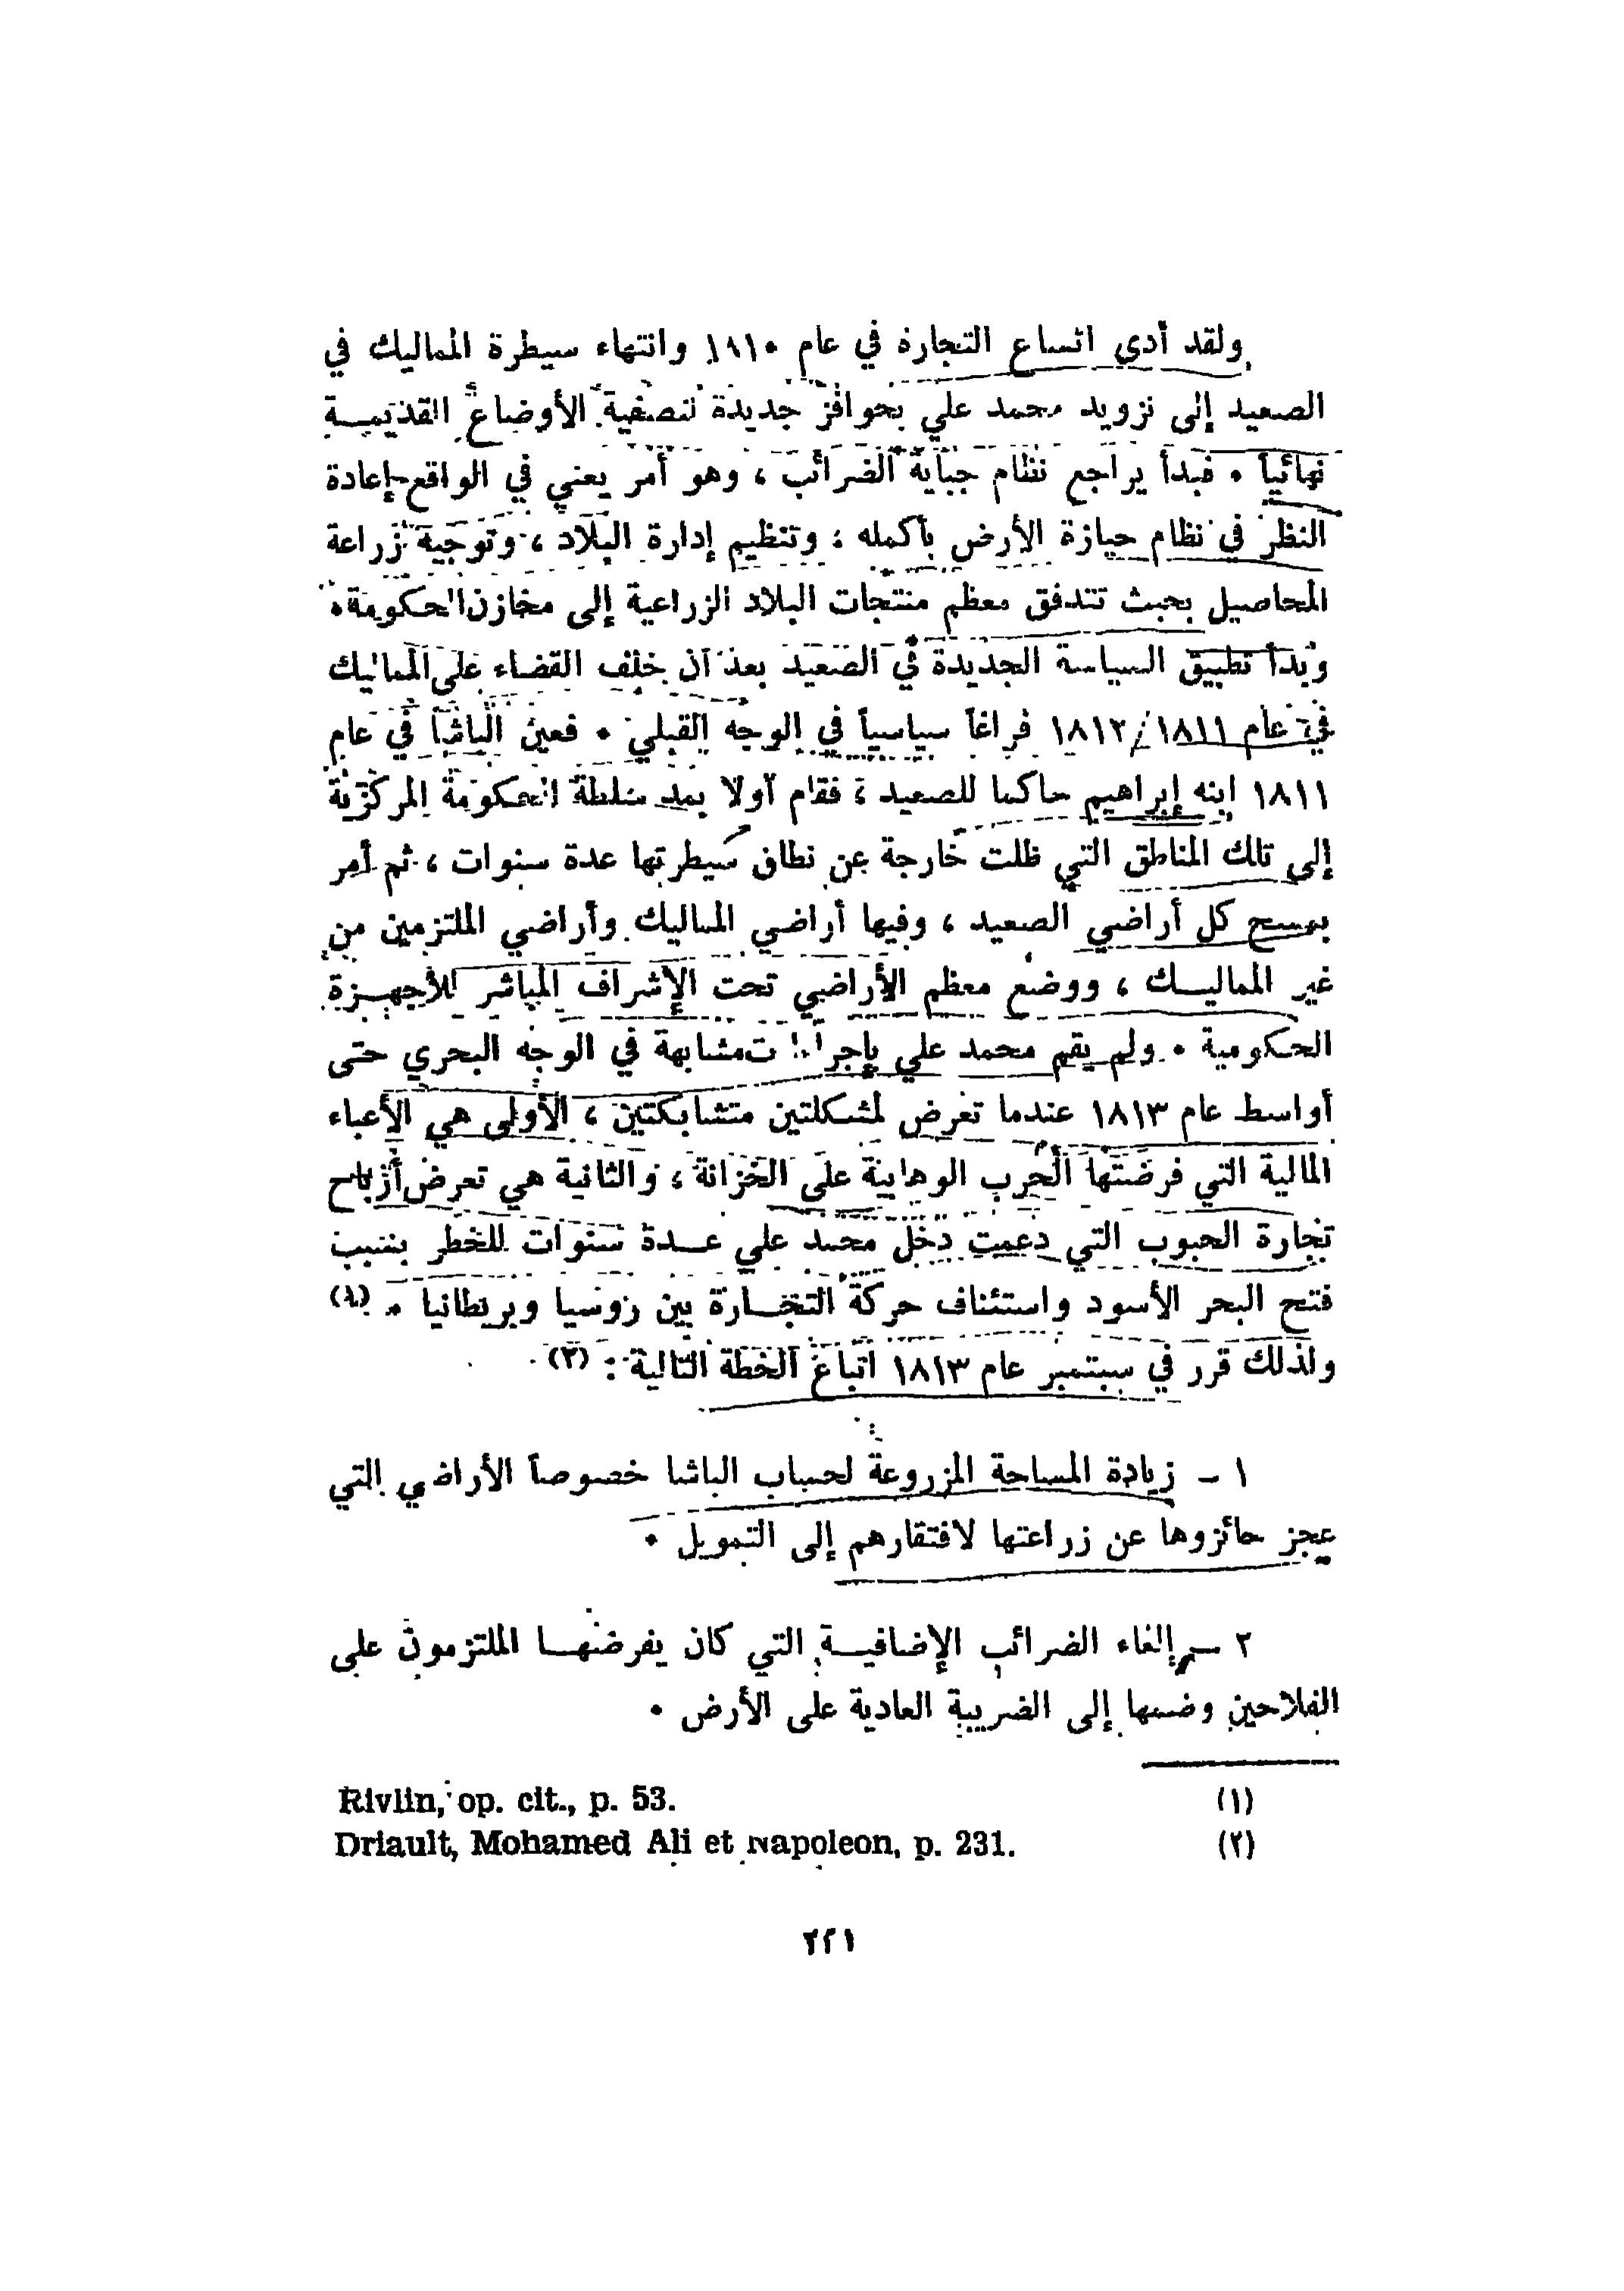 ولقد أدى اتساع التجارة في عام ١٨١٠ وانتهاء سيطرة المماليك في
الصعيد إلى تزويد محمد علي بحوافز جديدة لتصفية الأوضاع القديمــة
نهائياً • فبدأ يراجع نظام جباية الضرائب ، وهو أمر يعني في الواقع إعادة
النظر في نظام حيازة الأرض بأكمله ، وتنظيم إدارة البلاد ، وتوجيه زراعة
المحاصيل بحيث تتدفق معظم منتجات البلاد الزراعية إلى مخازن الحكومة •
وبدأ تطبيق السياسة الجديدة في الصعيد بعد أن خلف القضاء على المماليك
في عام ١٨١١/١٨١٢ فراغاً سياسياً في الوجه القبلي • فعين الباشا في عام
١٨١١ ابنه إبراهيم حاكما للصعيد ، فقام أولا بمد سلطة الحكومة المركزية
إلى تلك المناطق التي ظلت خارجة عن نطاق سيطرتها عدة سنوات ، ثم أمر
بمسح كل أراضي الصعيد ، وفيها أراضي المماليك وأراضي الملتزمين من
غير المماليــك ، ووضع معظم الأراضي تحت الإشراف المباشر للأجهــزة
الحكومية • ولم يقم محمد علي بإجراءات مشابهة في الوجه البحري حتى
أواسط عام ١٨١٣ عندما تعرض لمشكلتين متشابكتين ، الأولى هي الأعباء
المالية التي فرضتها الحرب الوهابية على الخزانة ، والثانية هي تعرض أرباح
تجارة الحبوب التي دعمت دخل محمد علي عــدة سنوات للخطر بسبب
فتح البحر الأسود واستئناف حركة التجــارة بين روسيا وبريطانيا • (١)
ولذلك قرر في سبتمبر عام ١٨١٣ اتباع الخطة التالية : (٢)
١ – زيادة المساحة المزروعة لحساب الباشا خصوصاً الأراضي التي
عجز حائزوها عن زراعتها لافتقارهم إلى التمويل •
٢ – إلغاء الضرائب الإضافيــة التي كان يفرضهــا الملتزمون على
الفلاحين وضمها إلى الضريبة العادية على الأرض •
Rivlin, op. cit., p. 53. (١)
Driault, Mohamed Ali et Napoleon, p. 231. (٢)
٢٢١